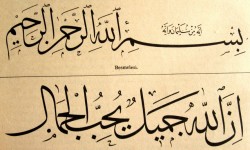 بسم الله الرحمن الرحيم
ان الله جميل يحب الجمال